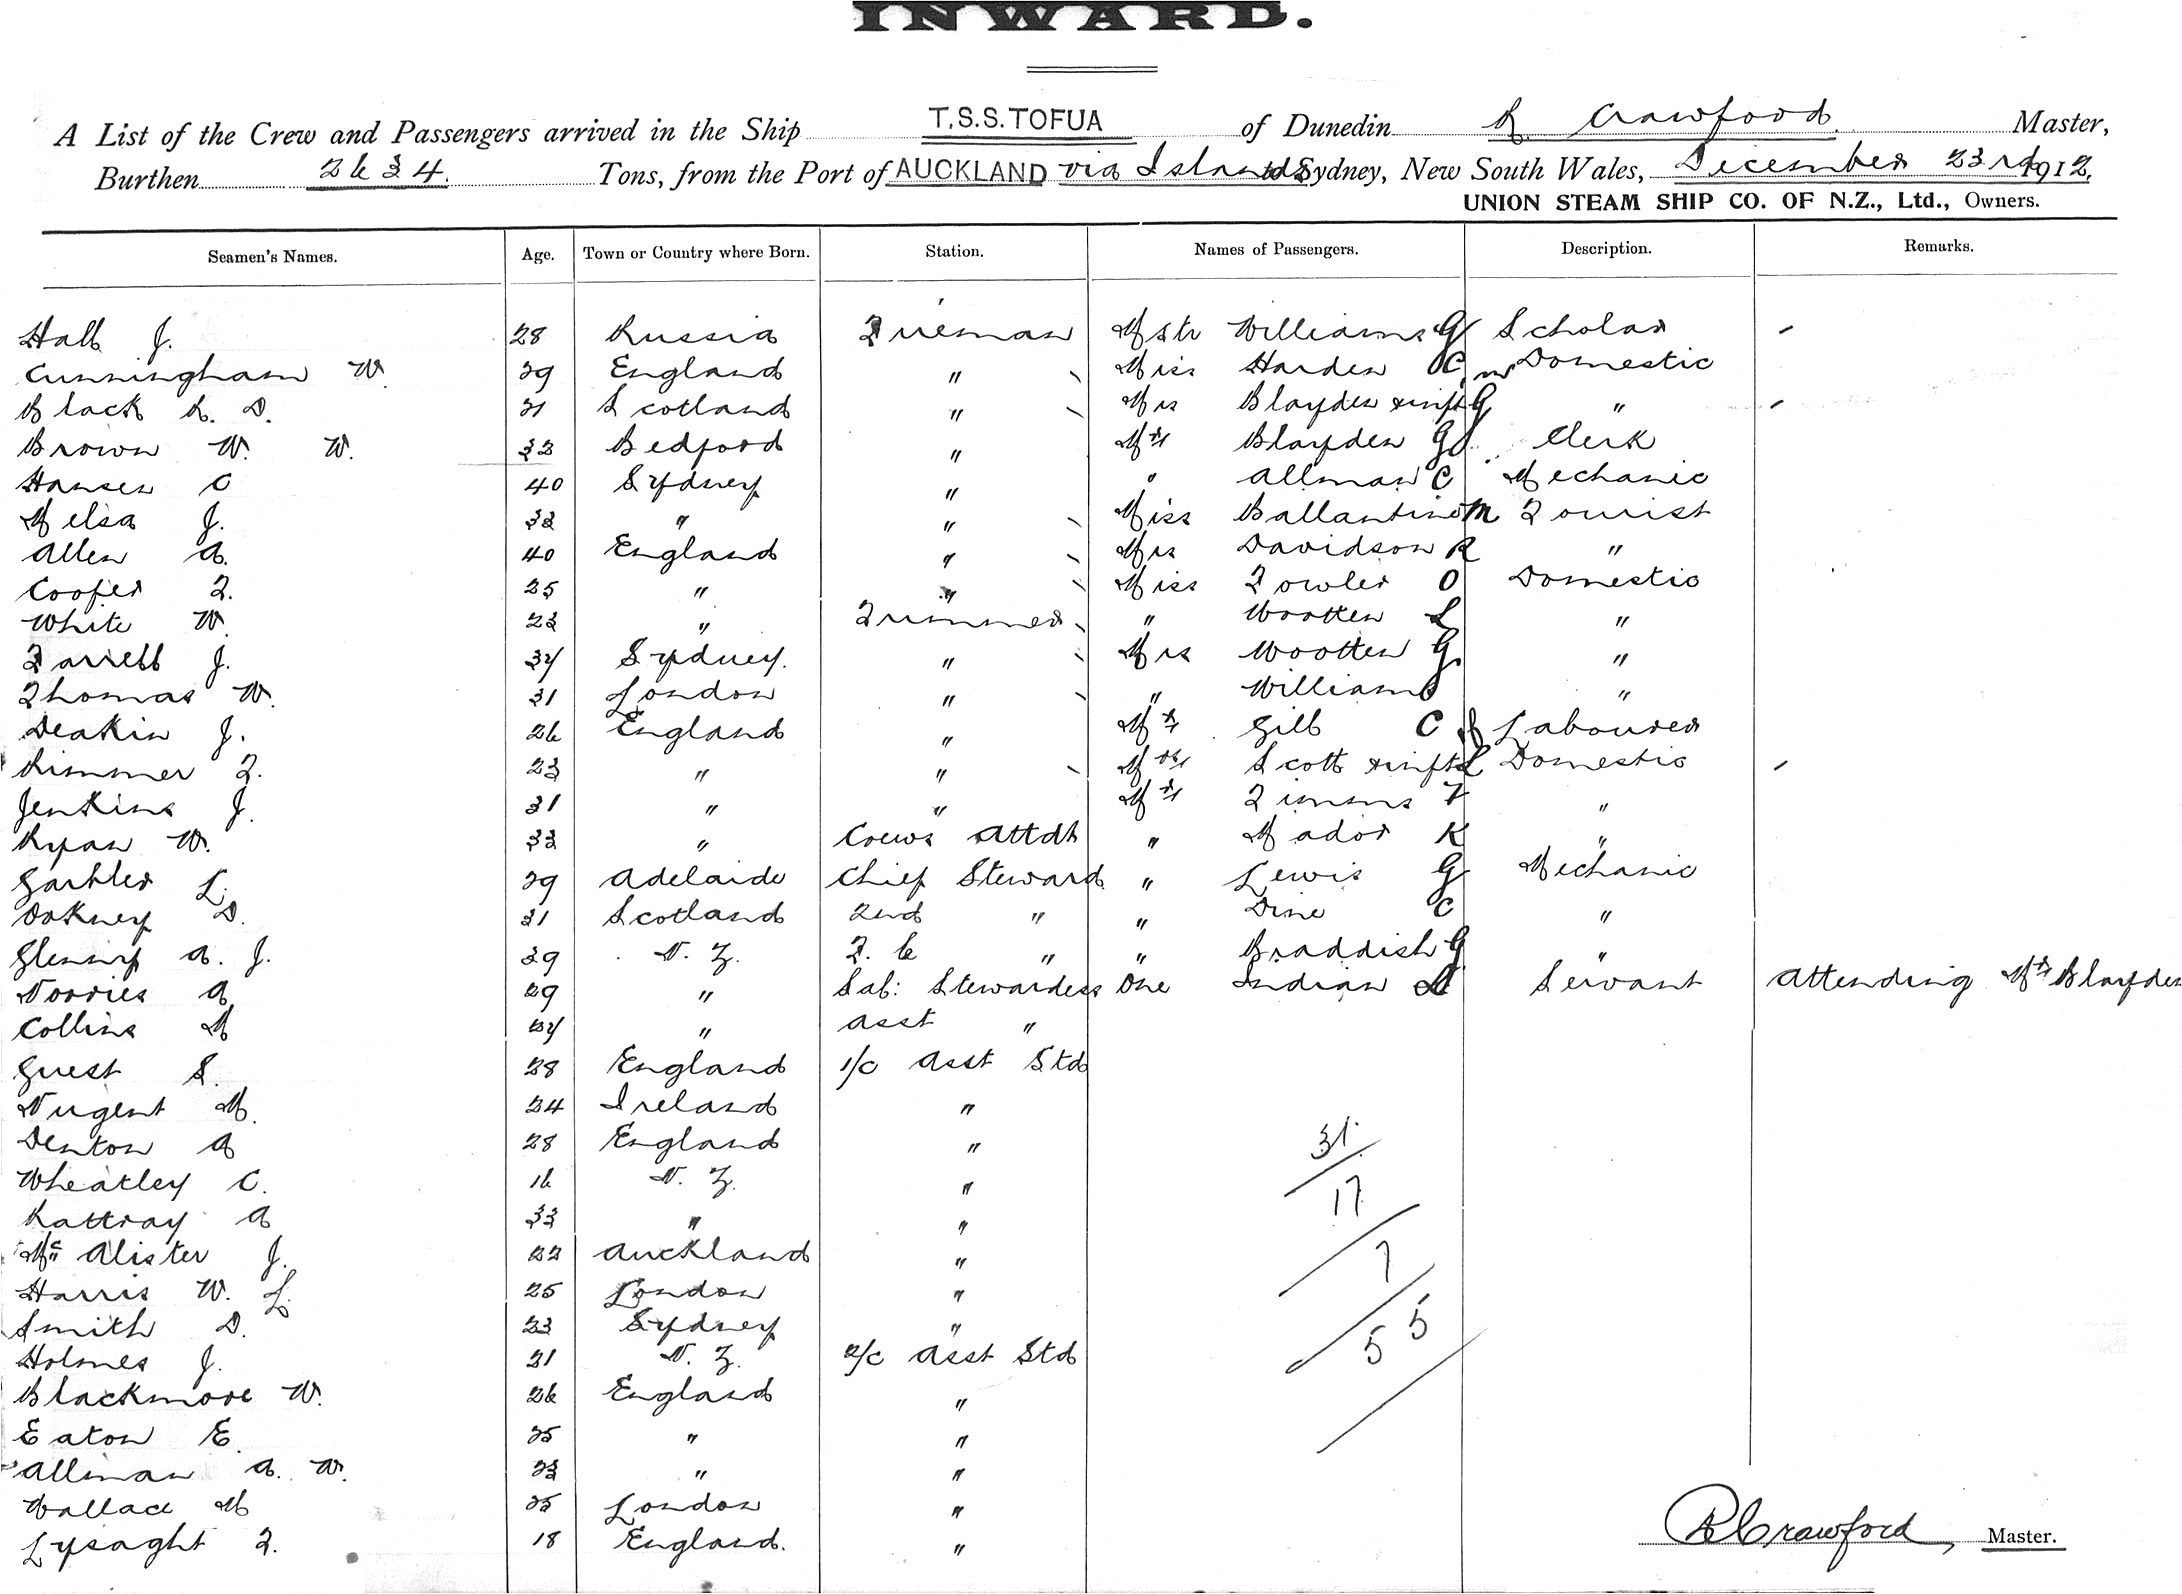 INWARD.
A List of the Crew and Passengers arrived in the Ship T.S.S. TOFUA of Dunedin R Crawford Master,
Burthen 2634. Tons, from the Port of AUCKLAND via Islands to Sydney, New South Wales, December 23rd 1912.
UNION STEAM SHIP CO. OF N.Z., Ltd., Owners.
Seamen's Names. Age. Town or Country where Born. Station. Names of Passengers. Description. Remarks.
Hall J. 28 Russia Fireman Mstr Williams G Scholar
Cunningham W 39 England " Miss Harden C Domestic
Black R. D. 31 Scotland " Mrs Blayden & inft G "
Brown W. W. 33 Bedford " Mr Blayden G Clerk
Hansen C 40 Sydney " " Allman C Mechanic
Melsa J. 33 " " Miss Ballantine M Tourist
Allen A. 40 England " Mrs Davidson R "
Cooper F. 25 " " Miss Fowler O Domestic
White W 23 " Trimmer " Wootten L "
Farrell J. Sydney. " Mrs Wootten G. "
Thomas W. 31 London " " Williams "
Deakin J. 26 England " Mr Gill C Labourer
Rimmer F. 23 " " Mrs Scott & inft L Domestic
Jenkins J. 31 " " Mr Timms F "
Ryan W. 33 " Crews Attdt " Mador K "
L. 39 Adelaide Chief Steward " Lewis G Mechanic
Oakney D. 31 Scotland 2nd " " Dine C "
Glenny A. J. 39 N. Z. F. C " " Braddish G "
Norries A 29 " Sal: Stewardess One Indian Servant Attending Mr Blayden
Collins M " Asst "
Guest S. 28 England 1/c Asst Std
Nugent M. 24 Ireland "
Denton A 28 England "
Wheatley C. 16 N. Z. "
Rattray A 33 " "
McAlister J. 22 Auckland "
Harris W. L. 25 London "
Smith D. 23 Sydney "
Holmes J. 21 N. Z. 2/c Asst Std
Blackmore W. 26 England "
Eaton E. 25 " "
Allman A. W. 23 " "
Wallace M 25 London "
Lysaght F. 18 England. "
31
17
7
5 5
R Crawford, Master.